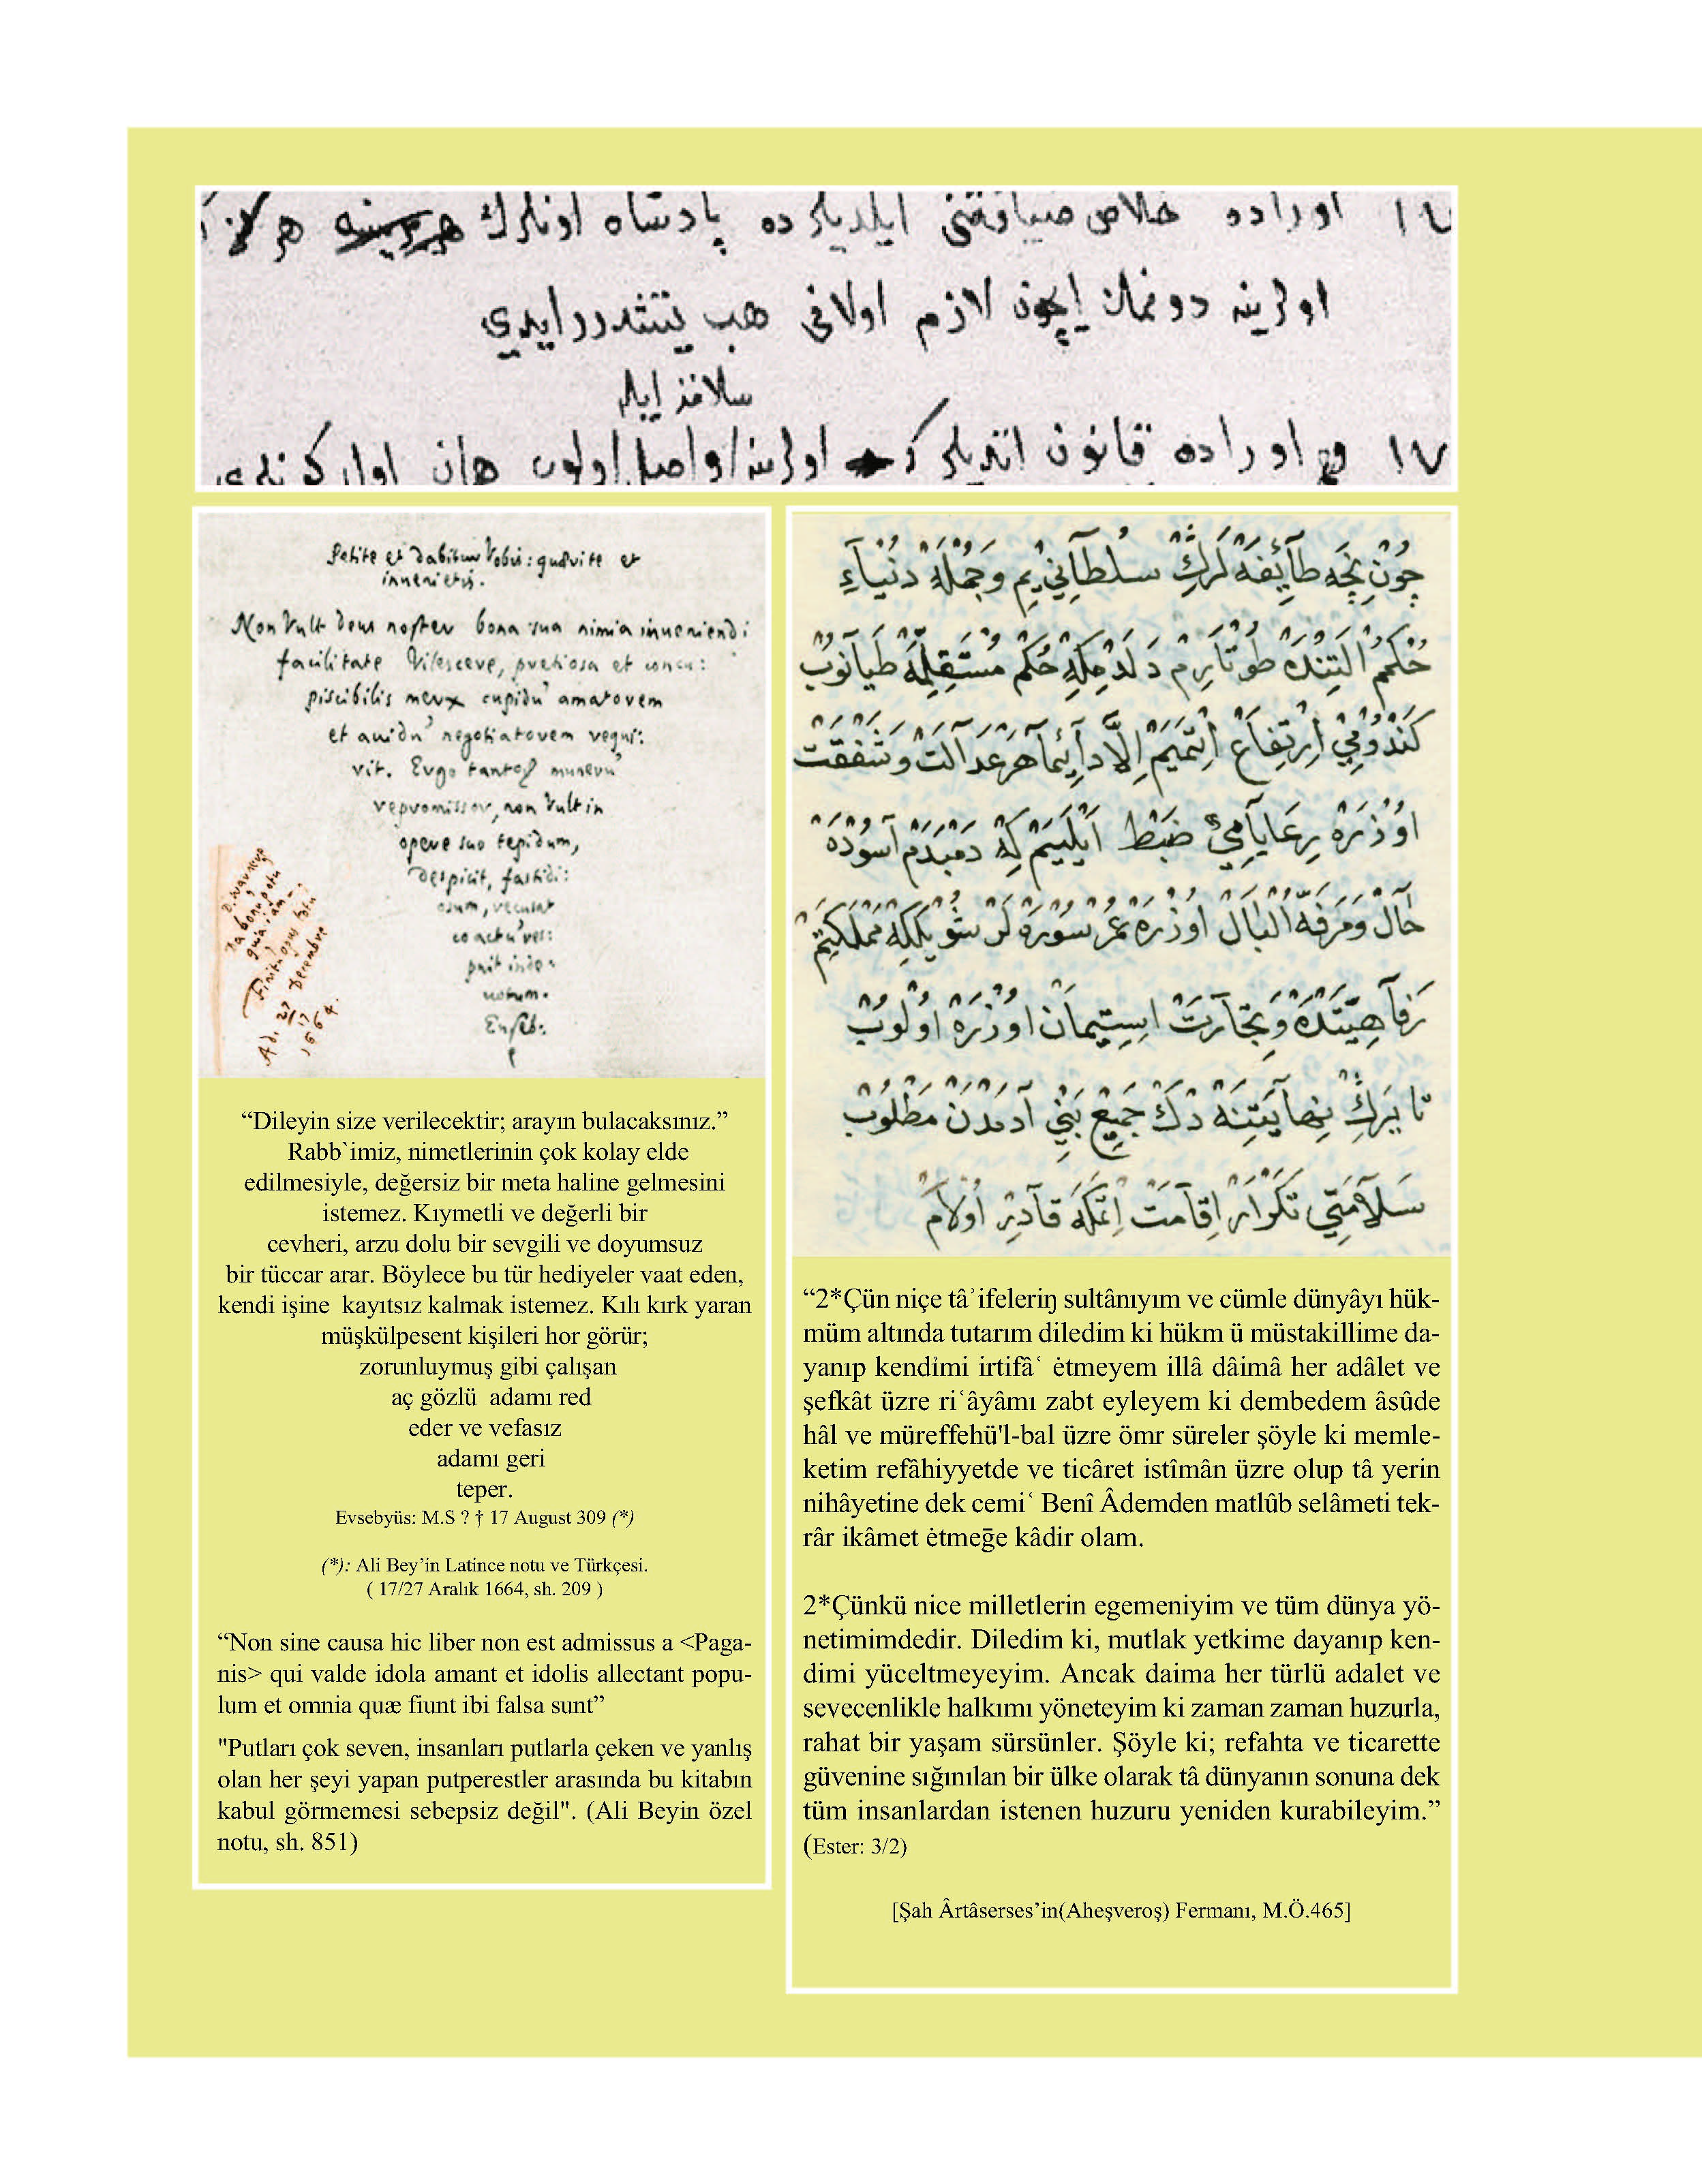 اوراده خلاص ضيافتنى ايلديلر ده پادشاه اونلرك هر
اولرينه دونمك ايچون لازم اولانى هپ
اوراده قانون اتديلر كه اولرينه واصل اولوب همان
Petite et dabitur Vobis: quærite et
invenietis.
Non Vult Deus noster bona sua nimia inveniendi
facilitate Vilescere, pretiosa et concu:
piscibilis merx cupidū amatorem
et avidū negotiatorem requi:
rit. Ergo tantoꝝ munerū
repromissor, non Vult in
opere suo tepidum,
despicit, fastidi:
osum, recusat
coactū, res:
puit inde
votum.
Euseb:
Finit
Decembre
Ad. 27/17
1664.
چُونْ نِيچَه طَآئِفَه لَرِڭْ سُلْطَآنِي يِمْ وَجُمْلَهْ دُنْيَاءِ
حُكْمُمْ اَلْتِنْدَهْ طُوتَارِمْ دِلَدِمْكِهْ حُكْمِ مُسْتَقِلِّمَهْ طَيَانُوبْ
كَنْدُومِيْ اِرْتِفَاعْ اِتْمَيَمْ اِلَّا دَآئِمَا هَرْ عَدَالَتْ وَشَفْقَتْ
اُوزْرَهْ رِعَايَامِيْ ضَبْطْ اَيْلَيَمْ كِهْ دَمْبَدَمْ آسُودَهْ
حَالْ وَمُرَفَّهُ الْبَالْ اُوزْرَهْ عُمْرْ سُورَهْ لَرْ شُويْلَكِهْ مَمْلَكَتِمْ
رَفَاهِيَّتْدَهْ وَتِجَارَتْ اِسْتِيمَانْ اُوزْرَهْ اُولُوبْ
تا يَرِڭْ نِهَايَتِنَهْ دَكْ جَمِيعْ بَنِي آدَمْدَنْ مَطْلُوبْ
سَلَامَتِي تَكْرَارْ اِقَامَتْ اِتْمَكَهْ قَادِرْ اُولَامْ
“Dileyin size verilecektir; arayın bulacaksınız.”
Rabb`imiz, nimetlerinin çok kolay elde
edilmesiyle, değersiz bir meta haline gelmesini
istemez. Kıymetli ve değerli bir
cevheri, arzu dolu bir sevgili ve doyumsuz
bir tüccar arar. Böylece bu tür hediyeler vaat eden,
kendi işine kayıtsız kalmak istemez. Kılı kırk yaran
müşkülpesent kişileri hor görür;
zorunluymuş gibi çalışan
aç gözlü adamı red
eder ve vefasız
adamı geri
teper.
Evsebyüs: M.S ? † 17 August 309 (*)
(*): Ali Bey’in Latince notu ve Türkçesi.
( 17/27 Aralık 1664, sh. 209 )
“Non sine causa hic liber non est admissus a <Paga-
nis> qui valde idola amant et idolis allectant popu-
lum et omnia quæ fiunt ibi falsa sunt”
"Putları çok seven, insanları putlarla çeken ve yanlış
olan her şeyi yapan putperestler arasında bu kitabın
kabul görmemesi sebepsiz değil". (Ali Beyin özel
notu, sh. 851)
“2*Çün niçe tâʾifeleriŋ sultânıyım ve cümle dünyâyı hük-
müm altında tutarım diledim ki hükm ü müstakillime da-
yanıp kendi̇mi irtifâʿ ėtmeyem illâ dâimâ her adâlet ve
şefkât üzre riʿâyâmı zabt eyleyem ki dembedem âsûde
hâl ve müreffehü'l-bal üzre ömr süreler şöyle ki memle-
ketim refâhiyyetde ve ticâret istîmân üzre olup tâ yerin
nihâyetine dek cemiʿ Benî Âdemden matlûb selâmeti tek-
râr ikâmet ėtmeḡe kâdir olam.
2*Çünkü nice milletlerin egemeniyim ve tüm dünya yö-
netimimdedir. Diledim ki, mutlak yetkime dayanıp ken-
dimi yüceltmeyeyim. Ancak daima her türlü adalet ve
sevecenlikle halkımı yöneteyim ki zaman zaman huzurla,
rahat bir yaşam sürsünler. Şöyle ki; refahta ve ticarette
güvenine sığınılan bir ülke olarak tâ dünyanın sonuna dek
tüm insanlardan istenen huzuru yeniden kurabileyim.”
(Ester: 3/2)
[Şah Ârtâserses’in(Aheşveroş) Fermanı, M.Ö.465]